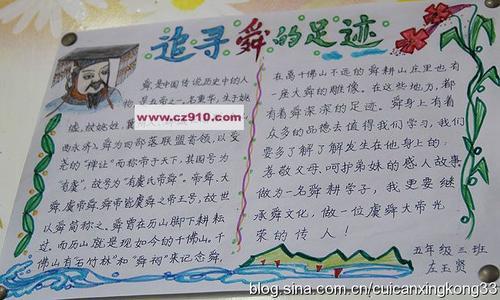 追寻舜的足迹
舜是中国传说历史中的人
www.cz910.com
墟,故姚姓,
西永济),舜为四部落联盟首领,以受
尧的"禅让"而称帝于天下,其国号为
"有虞",故号为"有虞氏帝舜"。帝舜、大
舜、虞帝舜、舜帝皆虞舜之帝王号,故世
以舜简称之。舜曾在历山脚下耕耘
过,而历山就是现如今的千佛山。千
佛山有石竹林"和"舜祠"来记念舜,
在离千佛山不远的舜耕山庄里也有
一座大舜的雕像。在这些地方,都
有着舜深深的足迹。舜身上有着
众多的品德去值得我们学习,我们
要多了解了解发生在他身上的:
孝敬父母、呵护弟妹的感人故事。
做为一名舜耕学子,我更要继
承舜文化,做一位虞舜大帝光
荣的传人!
五年级三班
左玉贤
blog.sina.com.cn/cuicanxingkong33